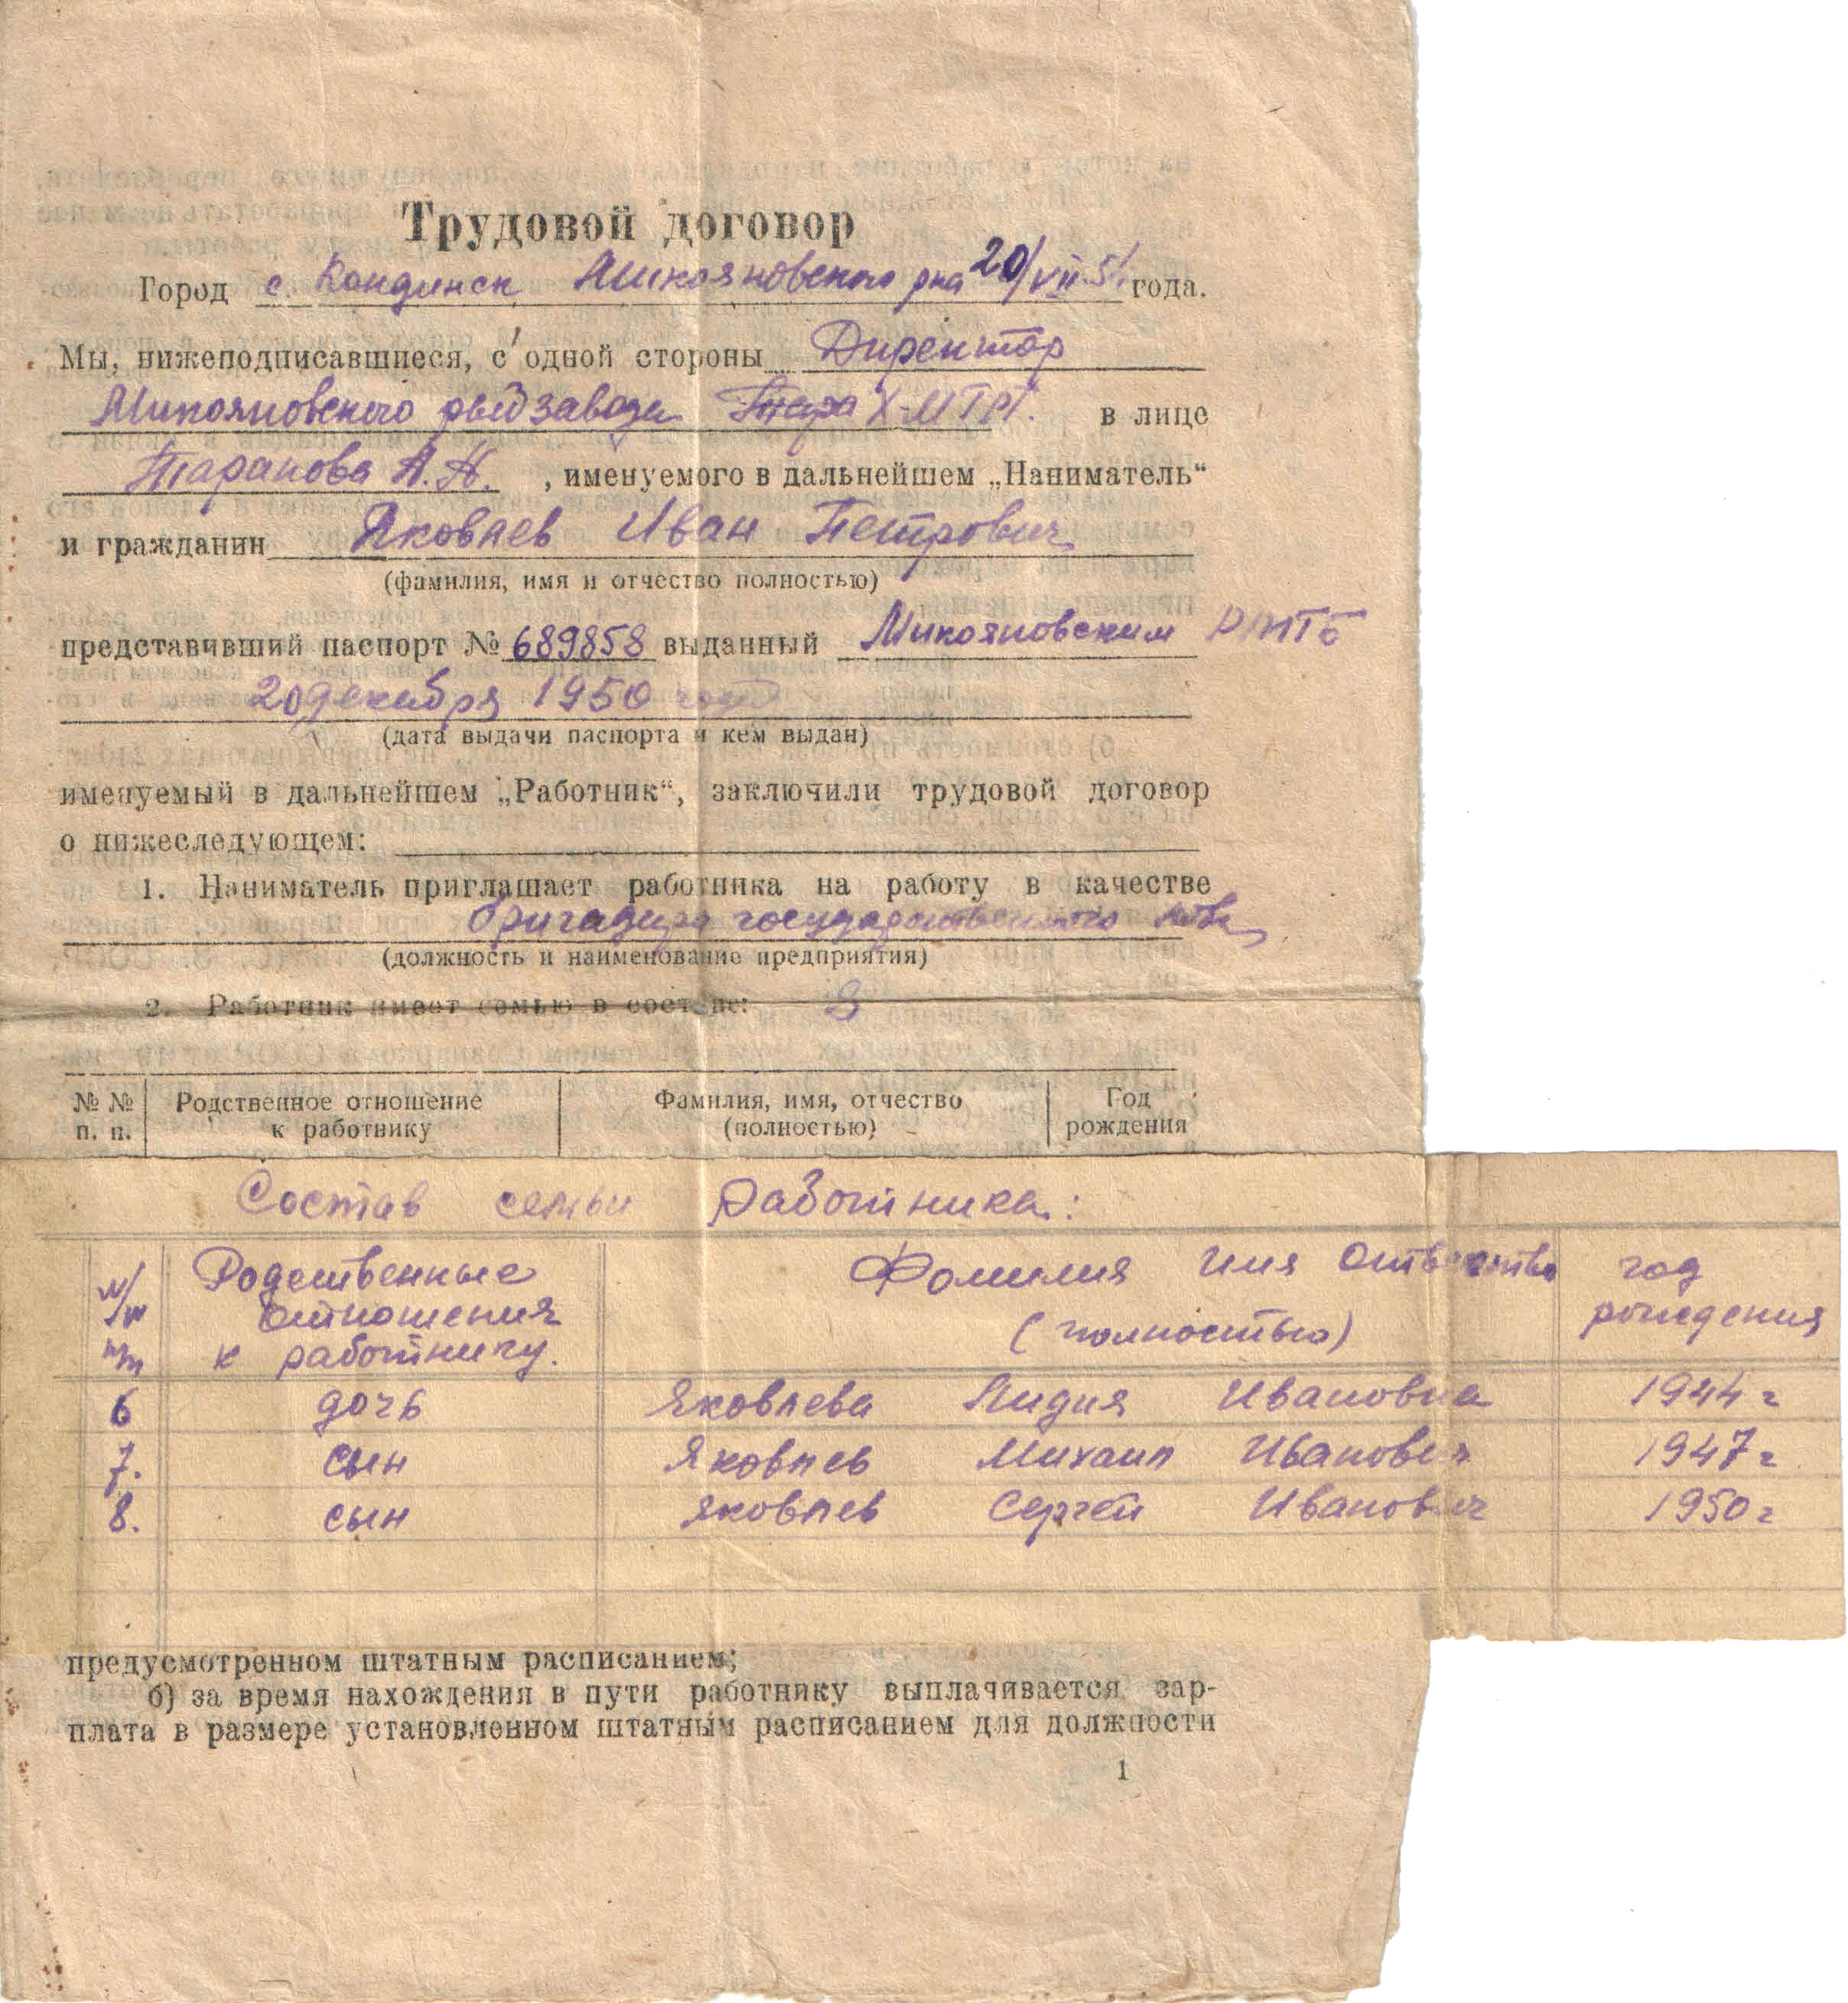 Трудовой договор
Город с. Кондинск Микояновского рна 20/VII.51. года.
Мы, нижеподписавшиеся, с одной стороны Директор
Микояновского рыбзавода Х-МГРТ. в лице
Таранова А.Н. , именуемого в дальнейшем „Наниматель“
и гражданин Яковлев Иван Петрович
(фамилия, имя и отчество полностью)
представивший паспорт № 689858 выданный Микояновским
20 декабря 1950 года
(дата выдачи паспорта и кем выдан)
именуемый в дальнейшем „Работник“, заключили трудовой договор
о нижеследующем:
1. Наниматель приглашает работника на работу в качестве
бригадира государственного лова
(должность и наименование предприятия)
2. Работник имеет семью в составе: 8
№ № Родственное отношение Фамилия, имя, отчество Год
п. п. к работнику (полностью) рождения
Состав семьи работника:
Родственные Фамилия имя отчество год
отношения (полностью) рождения
к работнику.
6 дочь Яковлева Лидия Ивановна 1944 г
7. сын Яковлев Михаил Иванович 1947 г
8. сын Яковлев Сергей Иванович 1950 г
предусмотренном штатным расписанием;
б) за время нахождения в пути работнику выплачивается зар-
плата в размере установленном штатным расписанием для должности
1